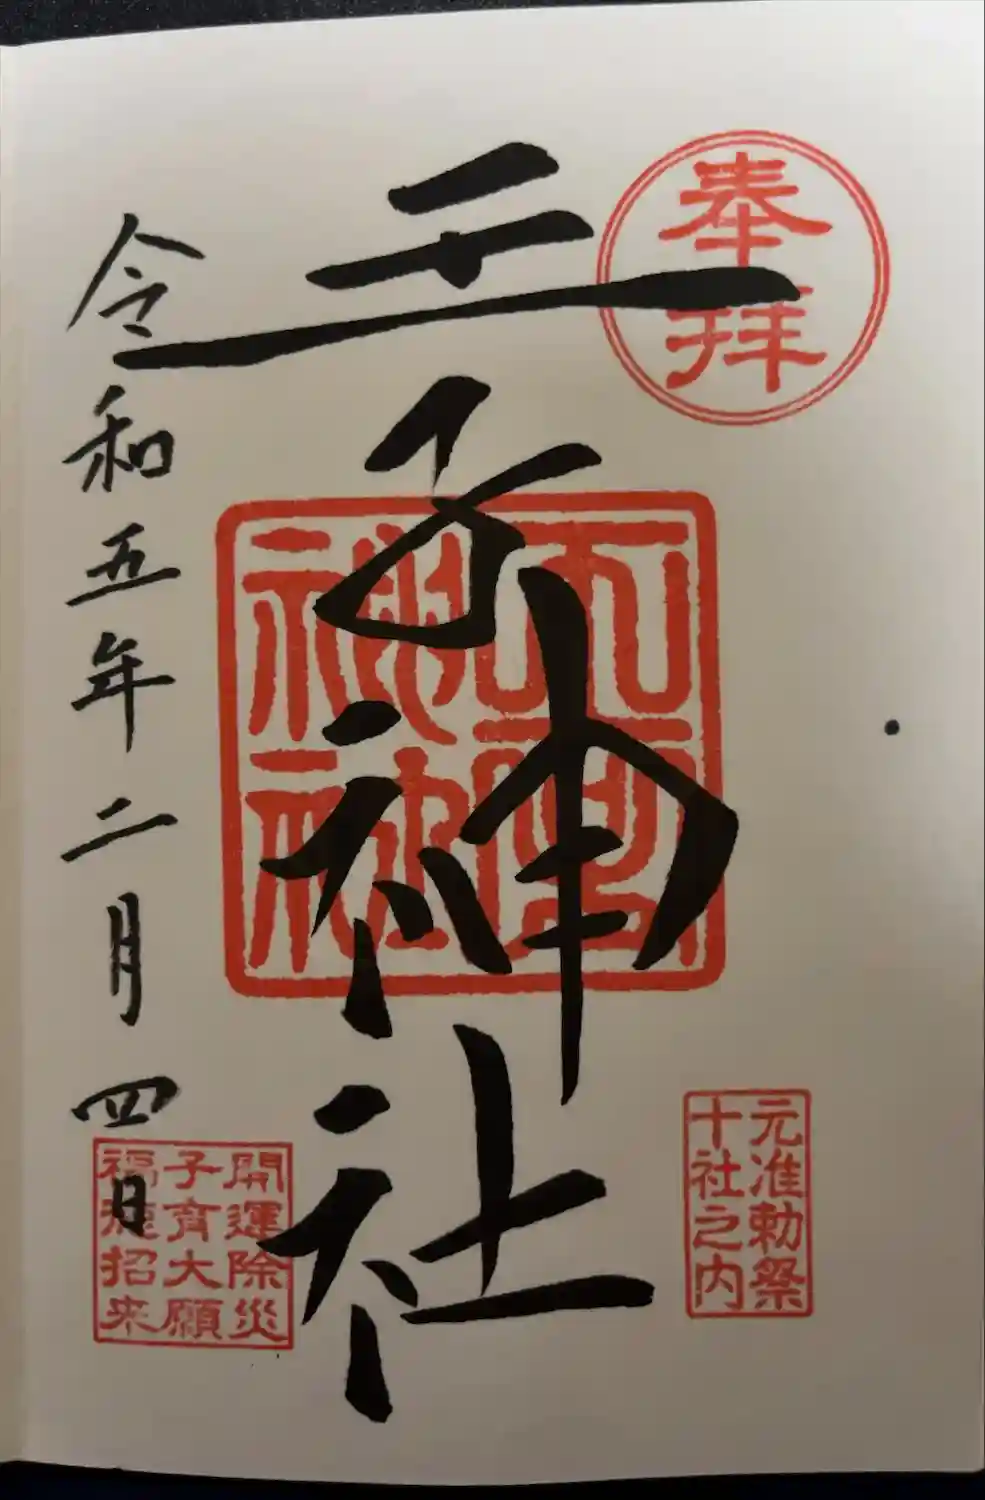 奉拝
元准勅祭
十社之内
王子神社
神社
開運除災
子育大願
福徳招来
令和五年二月四日